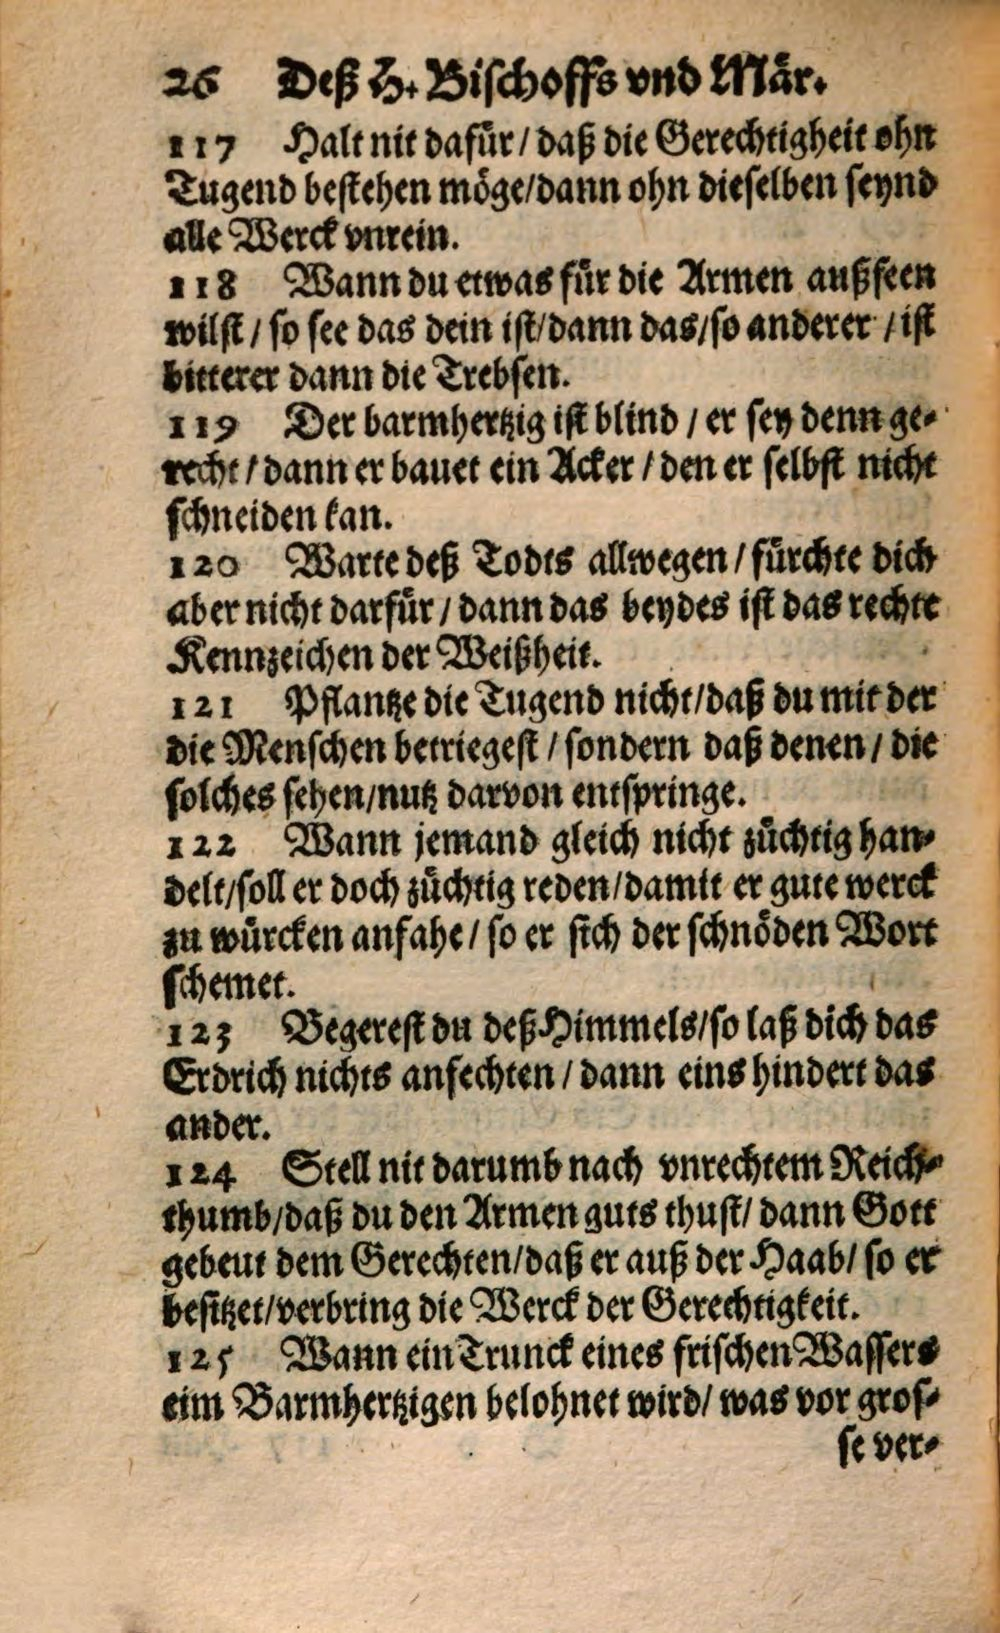 26 Deß H. Bischoffs vnd Mär.
117 Halt nit dafür / daß die Gerechtigheit ohn
Tugend bestehen möge/dann ohn dieselben seynd
alle Werck vnrein.
118 Wann du etwas für die Armen außseen
wilst / so see das dein ist/dann das/so anderer / ist
bitterer dann die Trebsen.
119 Der barmhertzig ist blind / er sey denn ge-
recht / dann er bauet ein Acker / den er selbst nicht
schneiden kan.
120 Warte deß Todts allwegen / fürchte dich
aber nicht darfür / dann das beydes ist das rechte
Kennzeichen der Weißheit.
121 Pflantze die Tugend nicht/daß du mit der
die Menschen betriegest / sondern daß denen / die
solches sehen/nutz darvon entspringe.
122 Wann jemand gleich nicht züchtig han-
delt/soll er doch züchtig reden/damit er gute werck
zu würcken anfahe / so er sich der schnöden Wort
schemet.
123 Begerest du deß Himmels/so laß dich das
Erdrich nichts anfechten / dann eins hindert das
ander.
124 Stell nit darumb nach vnrechtem Reich-
thumb/daß du den Armen guts thust/ dann Gott
gebeut dem Gerechten/daß er auß der Haab/ so er
besitzet/verbring die Werck der Gerechtigkeit.
125 Wann ein Trunck eines frischen Wassers
eim Barmhertzigen belohnet wird/ was vor gros-
se ver-